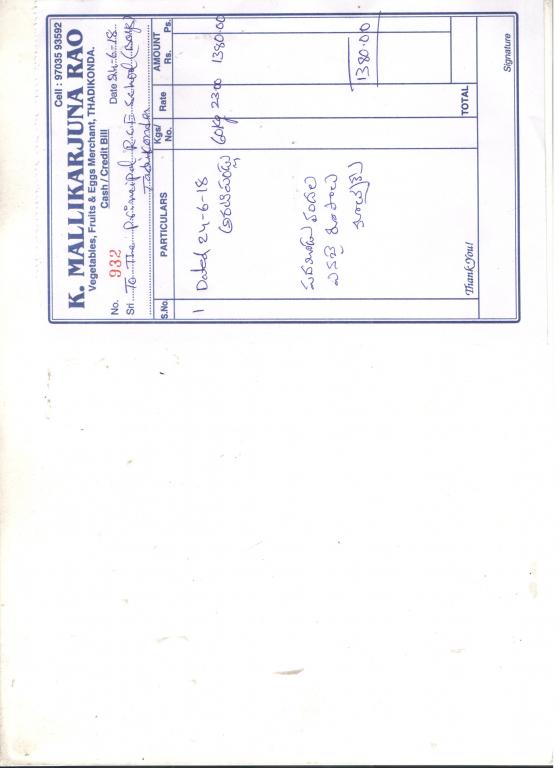 Cell : 97035 93592
K. MALLIKARJUNA RAO
Vegetables, Fruits & Eggs Merchant, THADIKONDA.
Cash / Credit Bill
No. 932 Date 24-6-18
Sri To The Principal School (Boys)
Tadikonda
S.No. PARTICULARS Kgs/ No. Rate AMOUNT Rs. Ps.
1 Dated 24-6-18
60kg 2300 1380.00
1380.00
Thank You! TOTAL
Signature